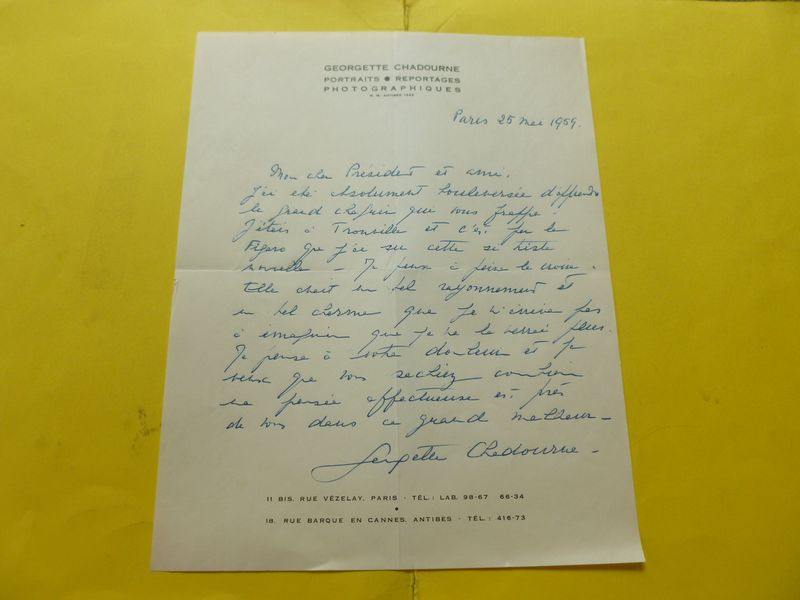 GEORGETTE CHADOURNE
PORTRAITS ● REPORTAGES
PHOTOGRAPHIQUES
R. M. ANTIBES
Paris 25 Mai 1959.
Mon cher Président et ami.
J'ai été absolument bouleversée d'apprendre
le grand chagrin qui vous frappe.
J'étais à Trouville et c'est par le
Figaro que j'ai su cette si triste
nouvelle – Je peux à peine le croire.
Elle avait un tel rayonnement et
un tel charme que je n'arrive pas
à imaginer que je ne la verrai plus.
Je pense à votre douleur et je
veux que vous sachiez combien
ma pensée affectueuse est près
de vous dans ce grand malheur –
Georgette Chadourne –
11 BIS, RUE VÉZELAY, PARIS - TÉL.: LAB. 98-67 66-34
●
18, RUE BARQUE EN CANNES, ANTIBES - TÉL.: 416-73